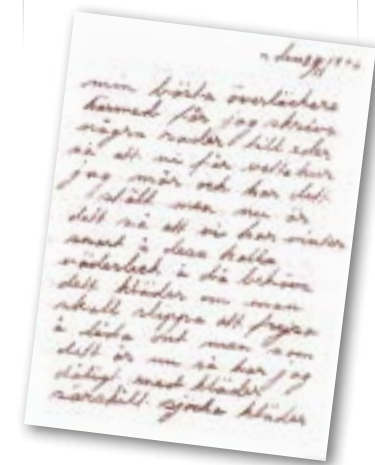 min bästa överläkare
härmed får jag skriva
några rader till eder
så att ni får veta hur
jag mår och har det
ställt men nu är
det så att vi har vinter
snart å dess kalla
väderlek å då behövs
det kläder om man
skall slippa att frysa
å men som
det är nu så har jag
dåligt med kläder
särskilt tjocka kläder